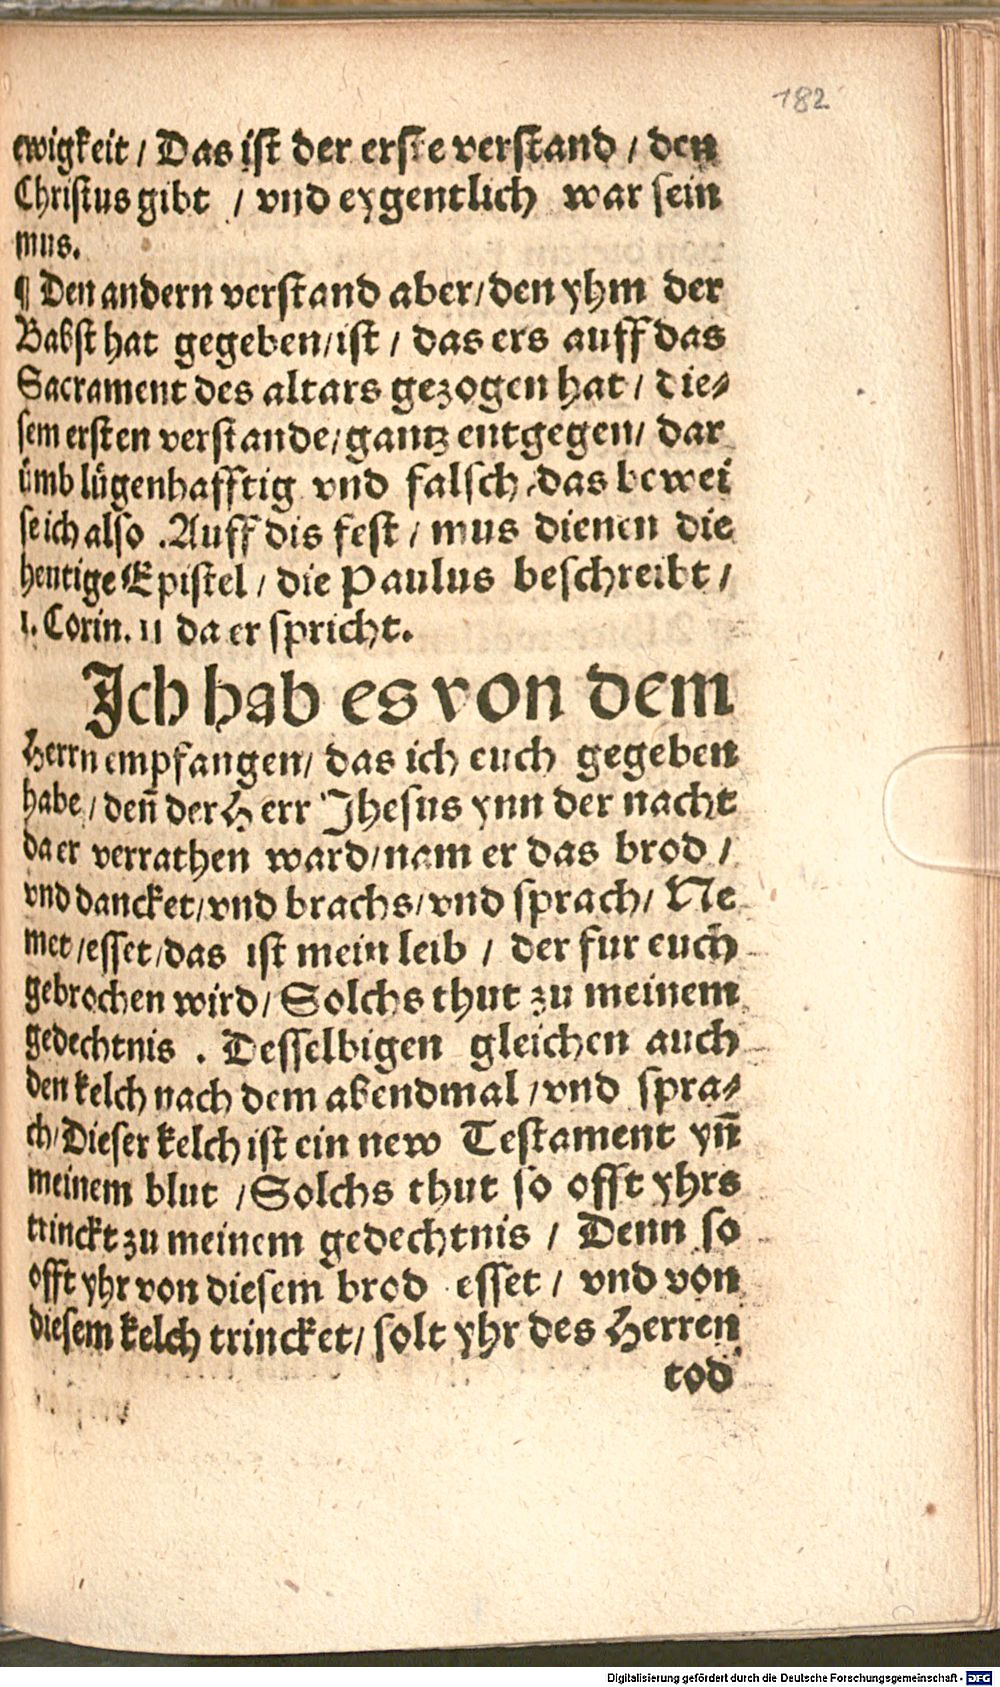 182
ewigkeit / Das ist der erste verstand / den
Christus gibt / vnd eygentlich war sein
mus.
¶ Den andern verstand aber / den yhm der
Babst hat gegeben / ist / das ers auff das
Sacrament des altars gezogen hat / die⸗
sem ersten verstande / gantz entgegen / dar
ümb lügenhafftig vnd falsch / das bewei
se ich also . Auff dis fest / mus dienen die
heutige Epistel / die Paulus beschreibt /
1. Corin. 11 da er spricht.
Ich hab es von dem
Herrn empfangen / das ich euch gegeben
habe / deñ der Herr Jhesus ynn der nacht
da er verrathen ward / nam er das brod /
vnd dancket / vnd brachs / vnd sprach / Ne
met / esset / das ist mein leib / der fur euch
gebrochen wird / Solchs thut zu meinem
gedechtnis . Desselbigen gleichen auch
den kelch nach dem abendmal / vnd spra⸗
ch / Dieser kelch ist ein new Testament yñ
meinem blut / Solchs thut so offt yhrs
trinckt zu meinem gedechtnis / Denn so
offt yhr von diesem brod esset / vnd von
diesem kelch trincket / solt yhr des Herren
tod
Digitalisierung gefördert durch die Deutsche Forschungsgemeinschaft - DFG